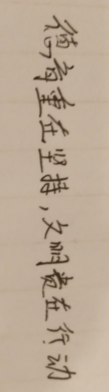 德育重在坚持，文明贵在行动